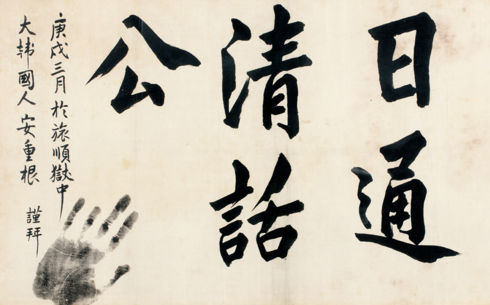 日通
清話
公
庚戌三月 於旅順獄中
大韓國人 安重根 謹拜